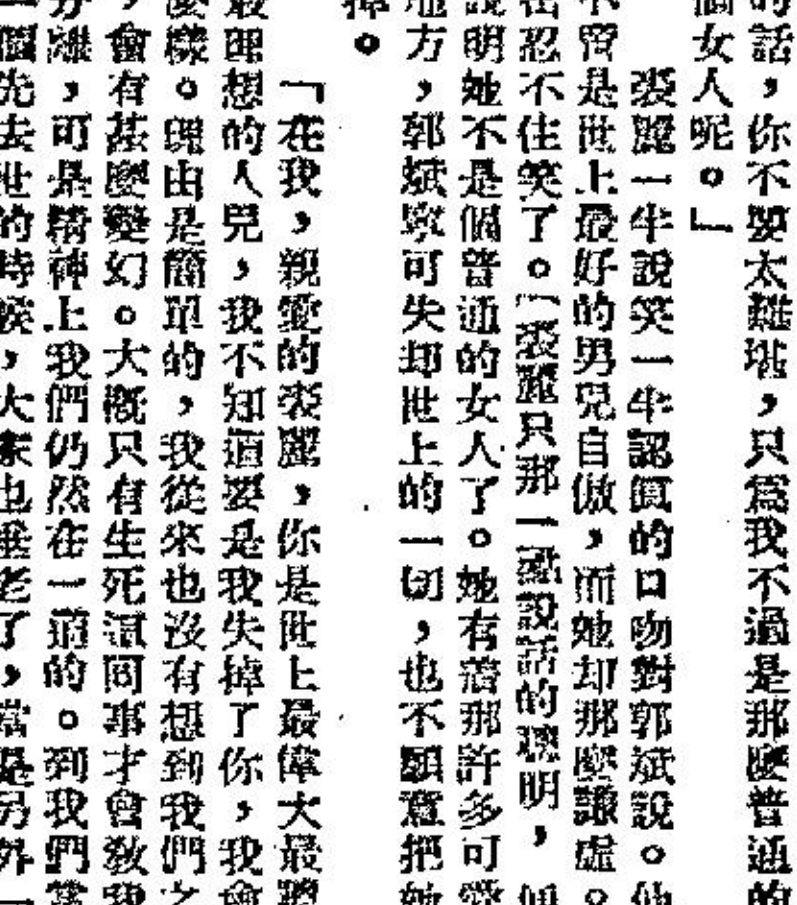 的話，你不要太難堪，只爲我不過是那麼普通的
個女人呢。」
裘麗一半說笑一半認眞的口吻對郭斌說。他
不管是世上最好的男兒自傲，而她却那麼謙虛。
出忍不住笑了。「裘麗只那一點說話的聰明，但
說明她不是個普通的女人了。她有着那許多可愛
地方，郭斌寧可失却世上的一切，也不願意把她
掉。
「在我，親愛的裘麗，你是世上最偉大最聰
最理想的人兒，我不知道要是我失掉了你，我會
麼樣。理由是簡單的，我從來也沒有想到我們之
，會有甚麼變幻。大概只有生死這回事才會教我
分離，可是精神上我們仍然在一道的。到我們當
一個先去世的時候，大家也垂老了，當是另外一